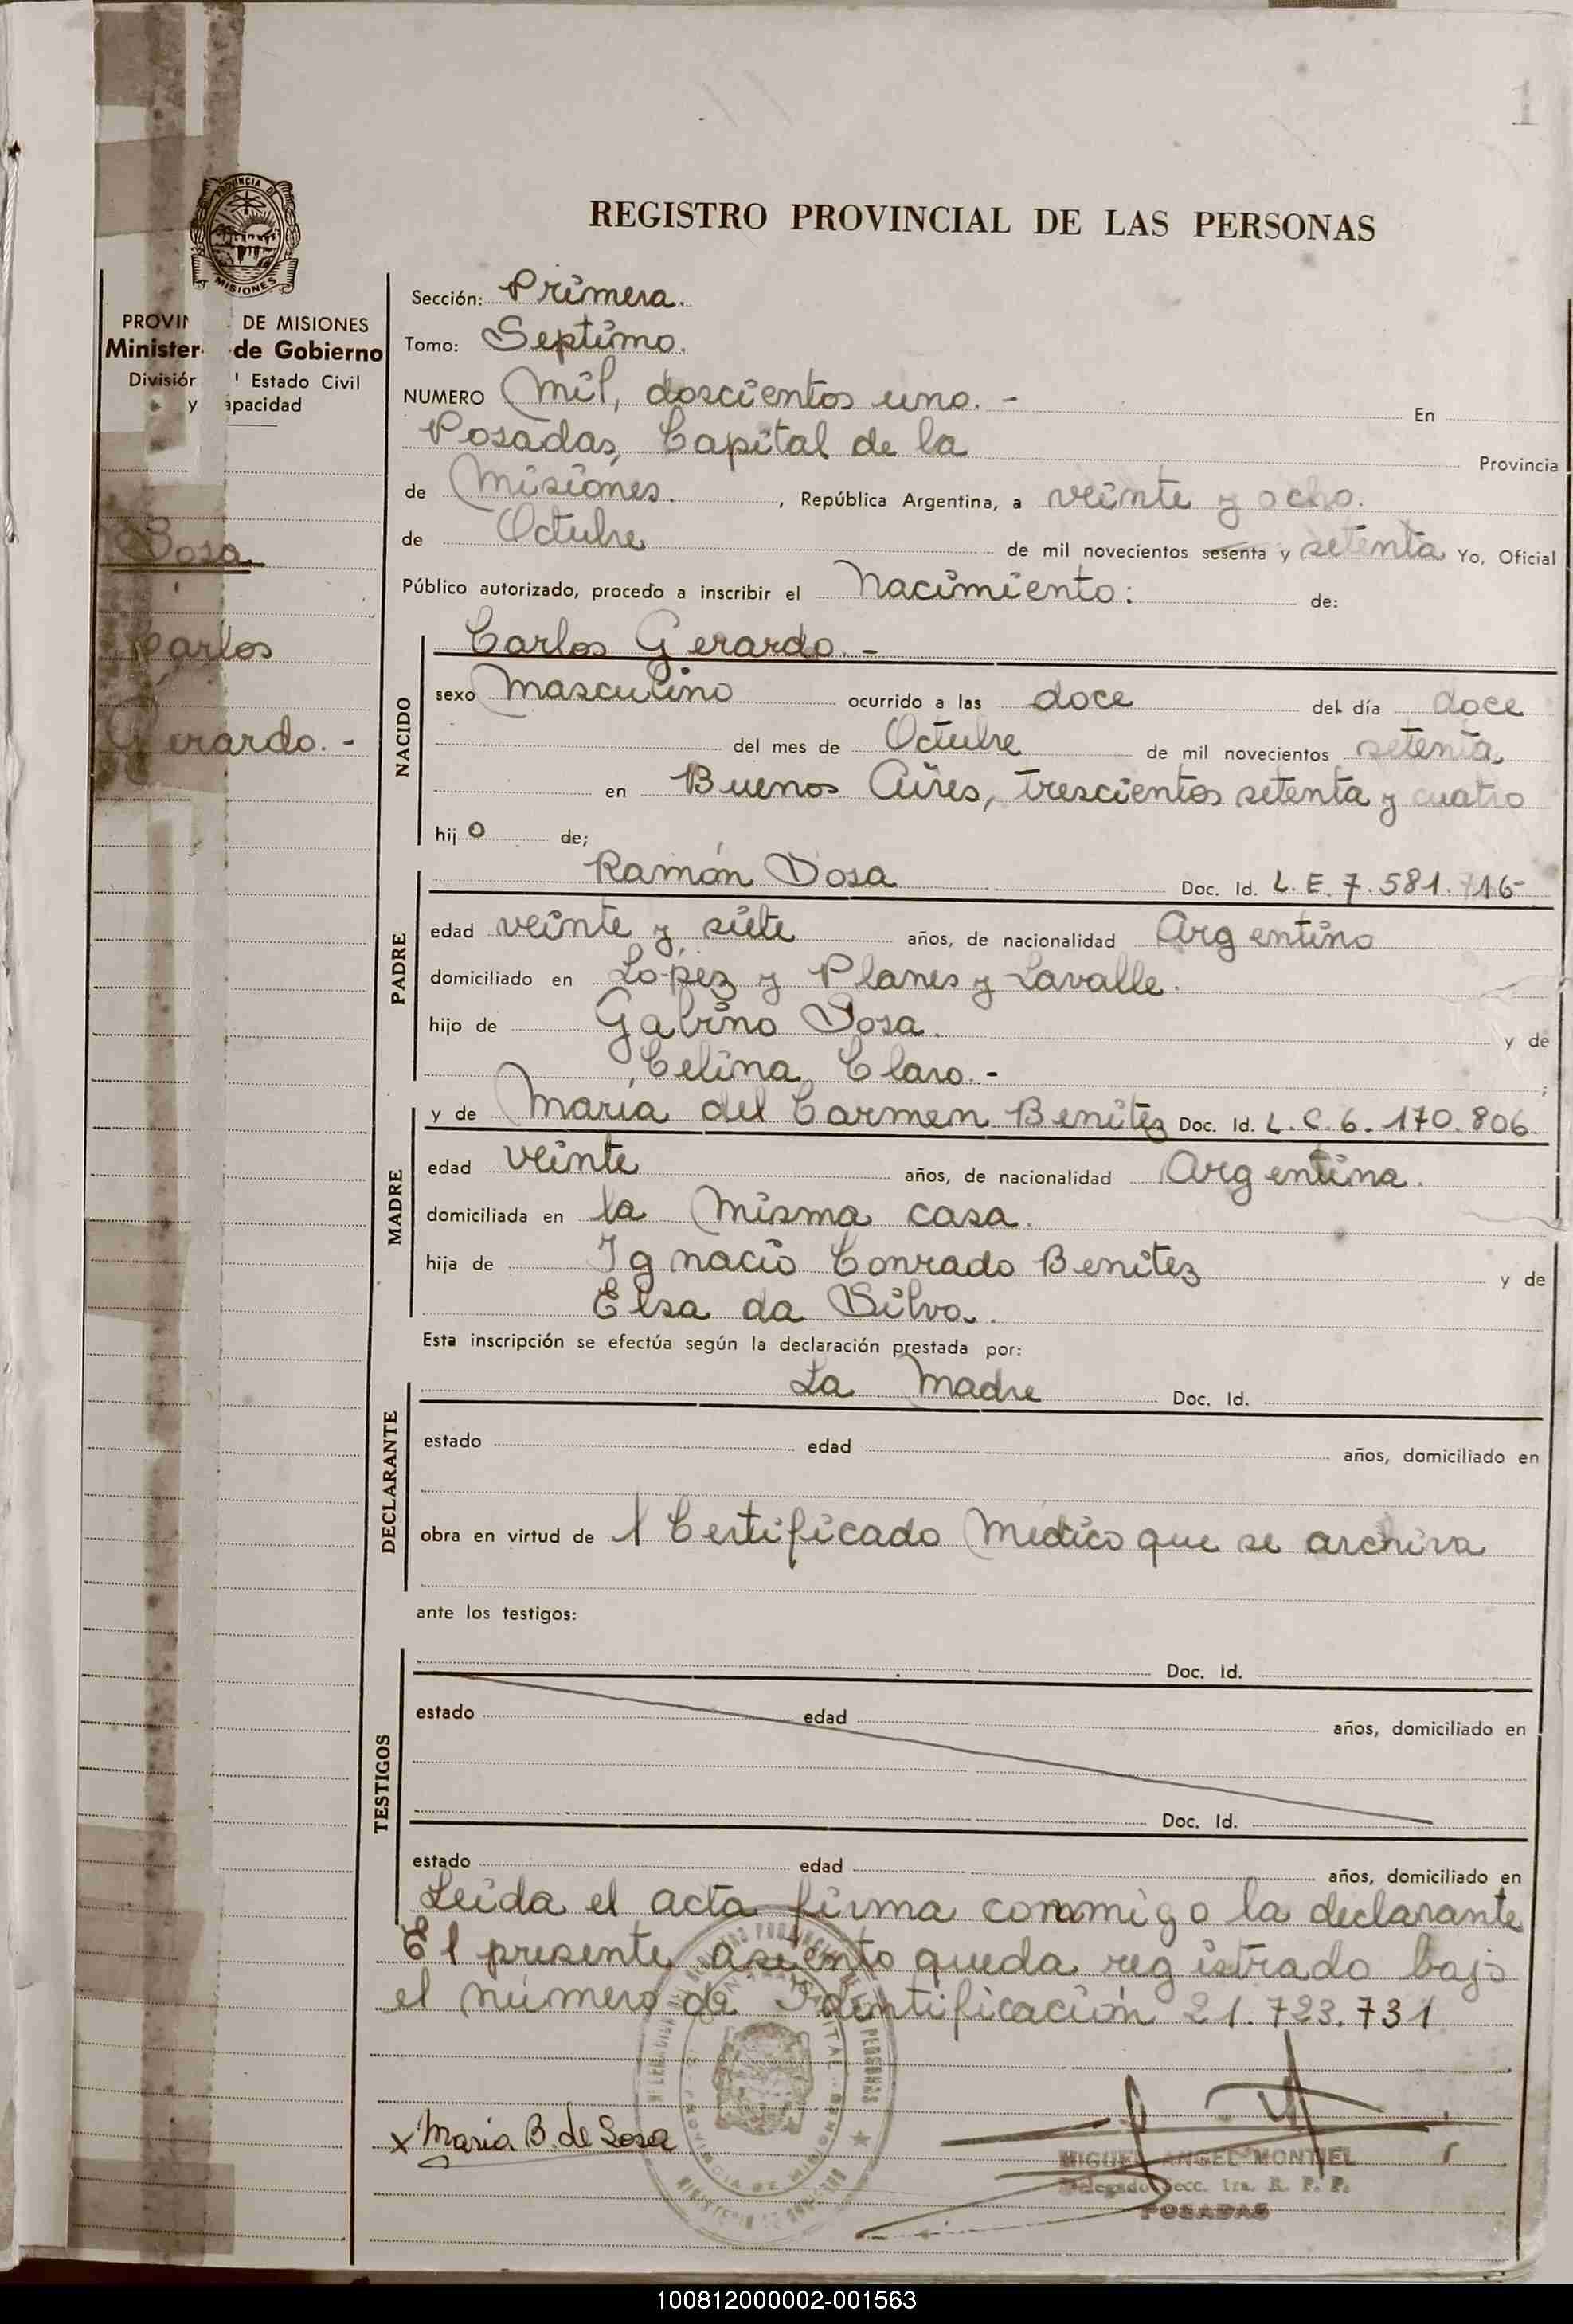 1
REGISTRO PROVINCIAL DE LAS PERSONAS
PROVINCIA DE
MISIONES
PROVIN DE MISIONES
Minister de Gobierno
División l Estado Civil
y apacidad
Sosa
Carlos
Gerardo. -
Sección: Primera.
Tomo: Septimo.
NUMERO Mil, doscientos uno. - En
Posadas, Capital de la Provincia
de Misiones. , República Argentina, a veinte y ocho.
de Octubre de mil novecientos sesenta y setenta Yo, Oficial
Público autorizado, procedo a inscribir el Nacimiento: de:
NACIDO
Carlos Gerardo. -
sexo Masculino ocurrido a las doce del día doce
del mes de Octubre de mil novecientos setenta
en Buenos Aires, trescientos setenta y cuatro
hijo de;
PADRE
Ramón Sosa Doc. Id. L. E. 7. 581. 716-
edad veinte y siete años, de nacionalidad Argentino
domiciliado en Lopez y Planes y Lavalle.
hijo de Gabino Sosa. y de
Celina Claro. - ;
MADRE
y de María del Carmen Benitez Doc. Id. L. C. 6. 170. 806
edad veinte años, de nacionalidad Argentina.
domiciliada en la misma casa.
hija de Ignacio Conrado Benitez y de
Elsa da Silva.
Esta inscripción se efectúa según la declaración prestada por:
DECLARANTE
La Madre Doc. Id.
estado edad años, domiciliado en
obra en virtud de 1 Certificado Medico que se archiva
ante los testigos:
TESTIGOS
Doc. Id.
estado edad años, domiciliado en
Doc. Id.
estado edad años, domiciliado en
Leida el acta firma conmigo la declarante
El presente asiento queda registrado bajo
el número de Identificación 21. 723. 731
x Maria B. de Sosa
MIGUEL ANGEL MONTIEL
Delegado Secc. 1ra. R. P. P.
POSADAS
100812000002-001563